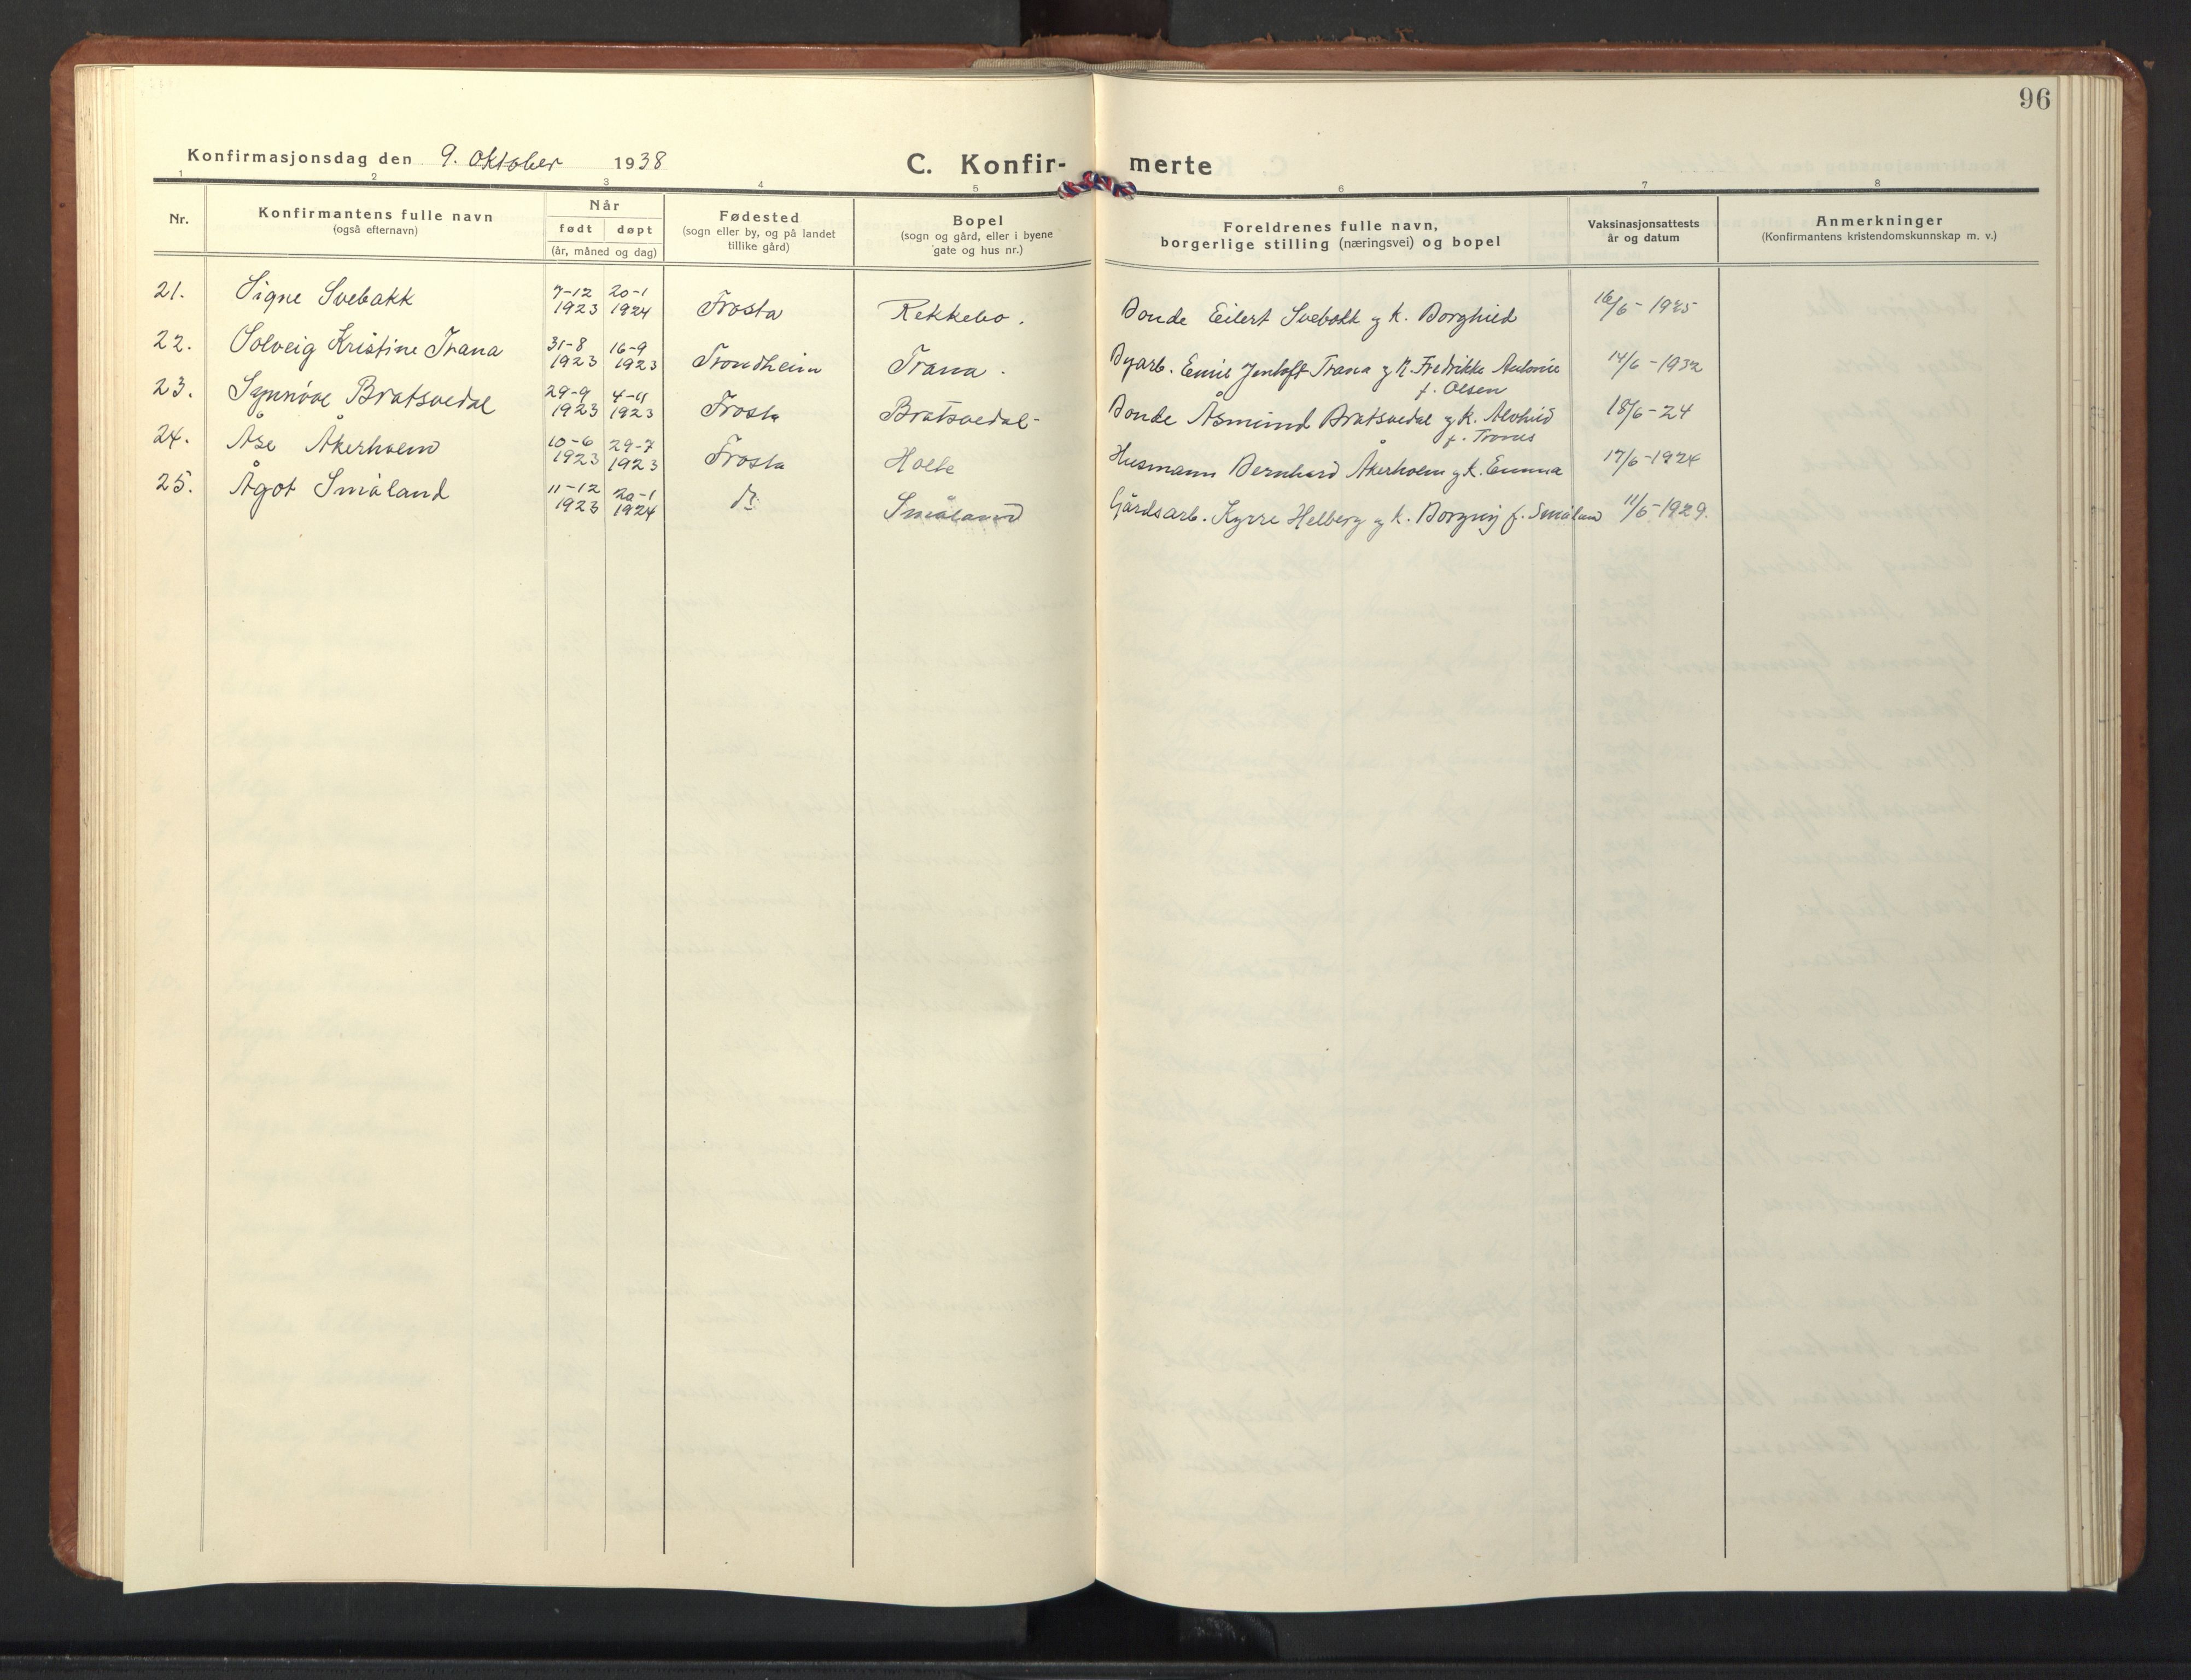 96
Konfirmasjonsdag den 9. Oktober 1938
C. Konfir- merte
1 2 3 4 5 6 7 8
Nr.
Konfirmantens fulle navn
(også efternavn)
Når
født døpt
(år, måned og dag)
Fødested
(sogn eller by, og på landet
tillike gård)
Bopel
(sogn og gård, eller i byene
gate og hus nr.)
Foreldrenes fulle navn,
borgerlige stilling (næringsvei) og bopel
Vaksinasjonsattests
år og datum
Anmerkninger
(Konfirmantens kristendomskunnskap m. v.)
21. Signe Svebakk 7-12 1923 20-1 1924 Frosta Rekkebo. Bonde Eilert Svebakk og k. Borghild 16/6-1925
22. Solveig Kristine Trana 31-8 1923 16-9 1923 Trondheim Trana. Byarb. Emil Jentoft Trana og k. Fredrikke Antonie f. Olsen 14/6-1932
23. Synnöve Bratsvedal 29-9 1923 4-11 1923 Frosta Bratsvedal- Bonde Åsmund Bratsvedal og k. Alvhild f. 18/6-24
24. Åse Åkerholm 10-6 1923 29-7 1923 Frosta Holte Husmann Bernhard Åkerholm og k. Emma 17/6-1924
25. Ågot Småland 11-12 1923 20-1 1924 do. Småland Gårdsarb. Kyrre Helberg og k. Borgny f. Småland 11/6-1929.